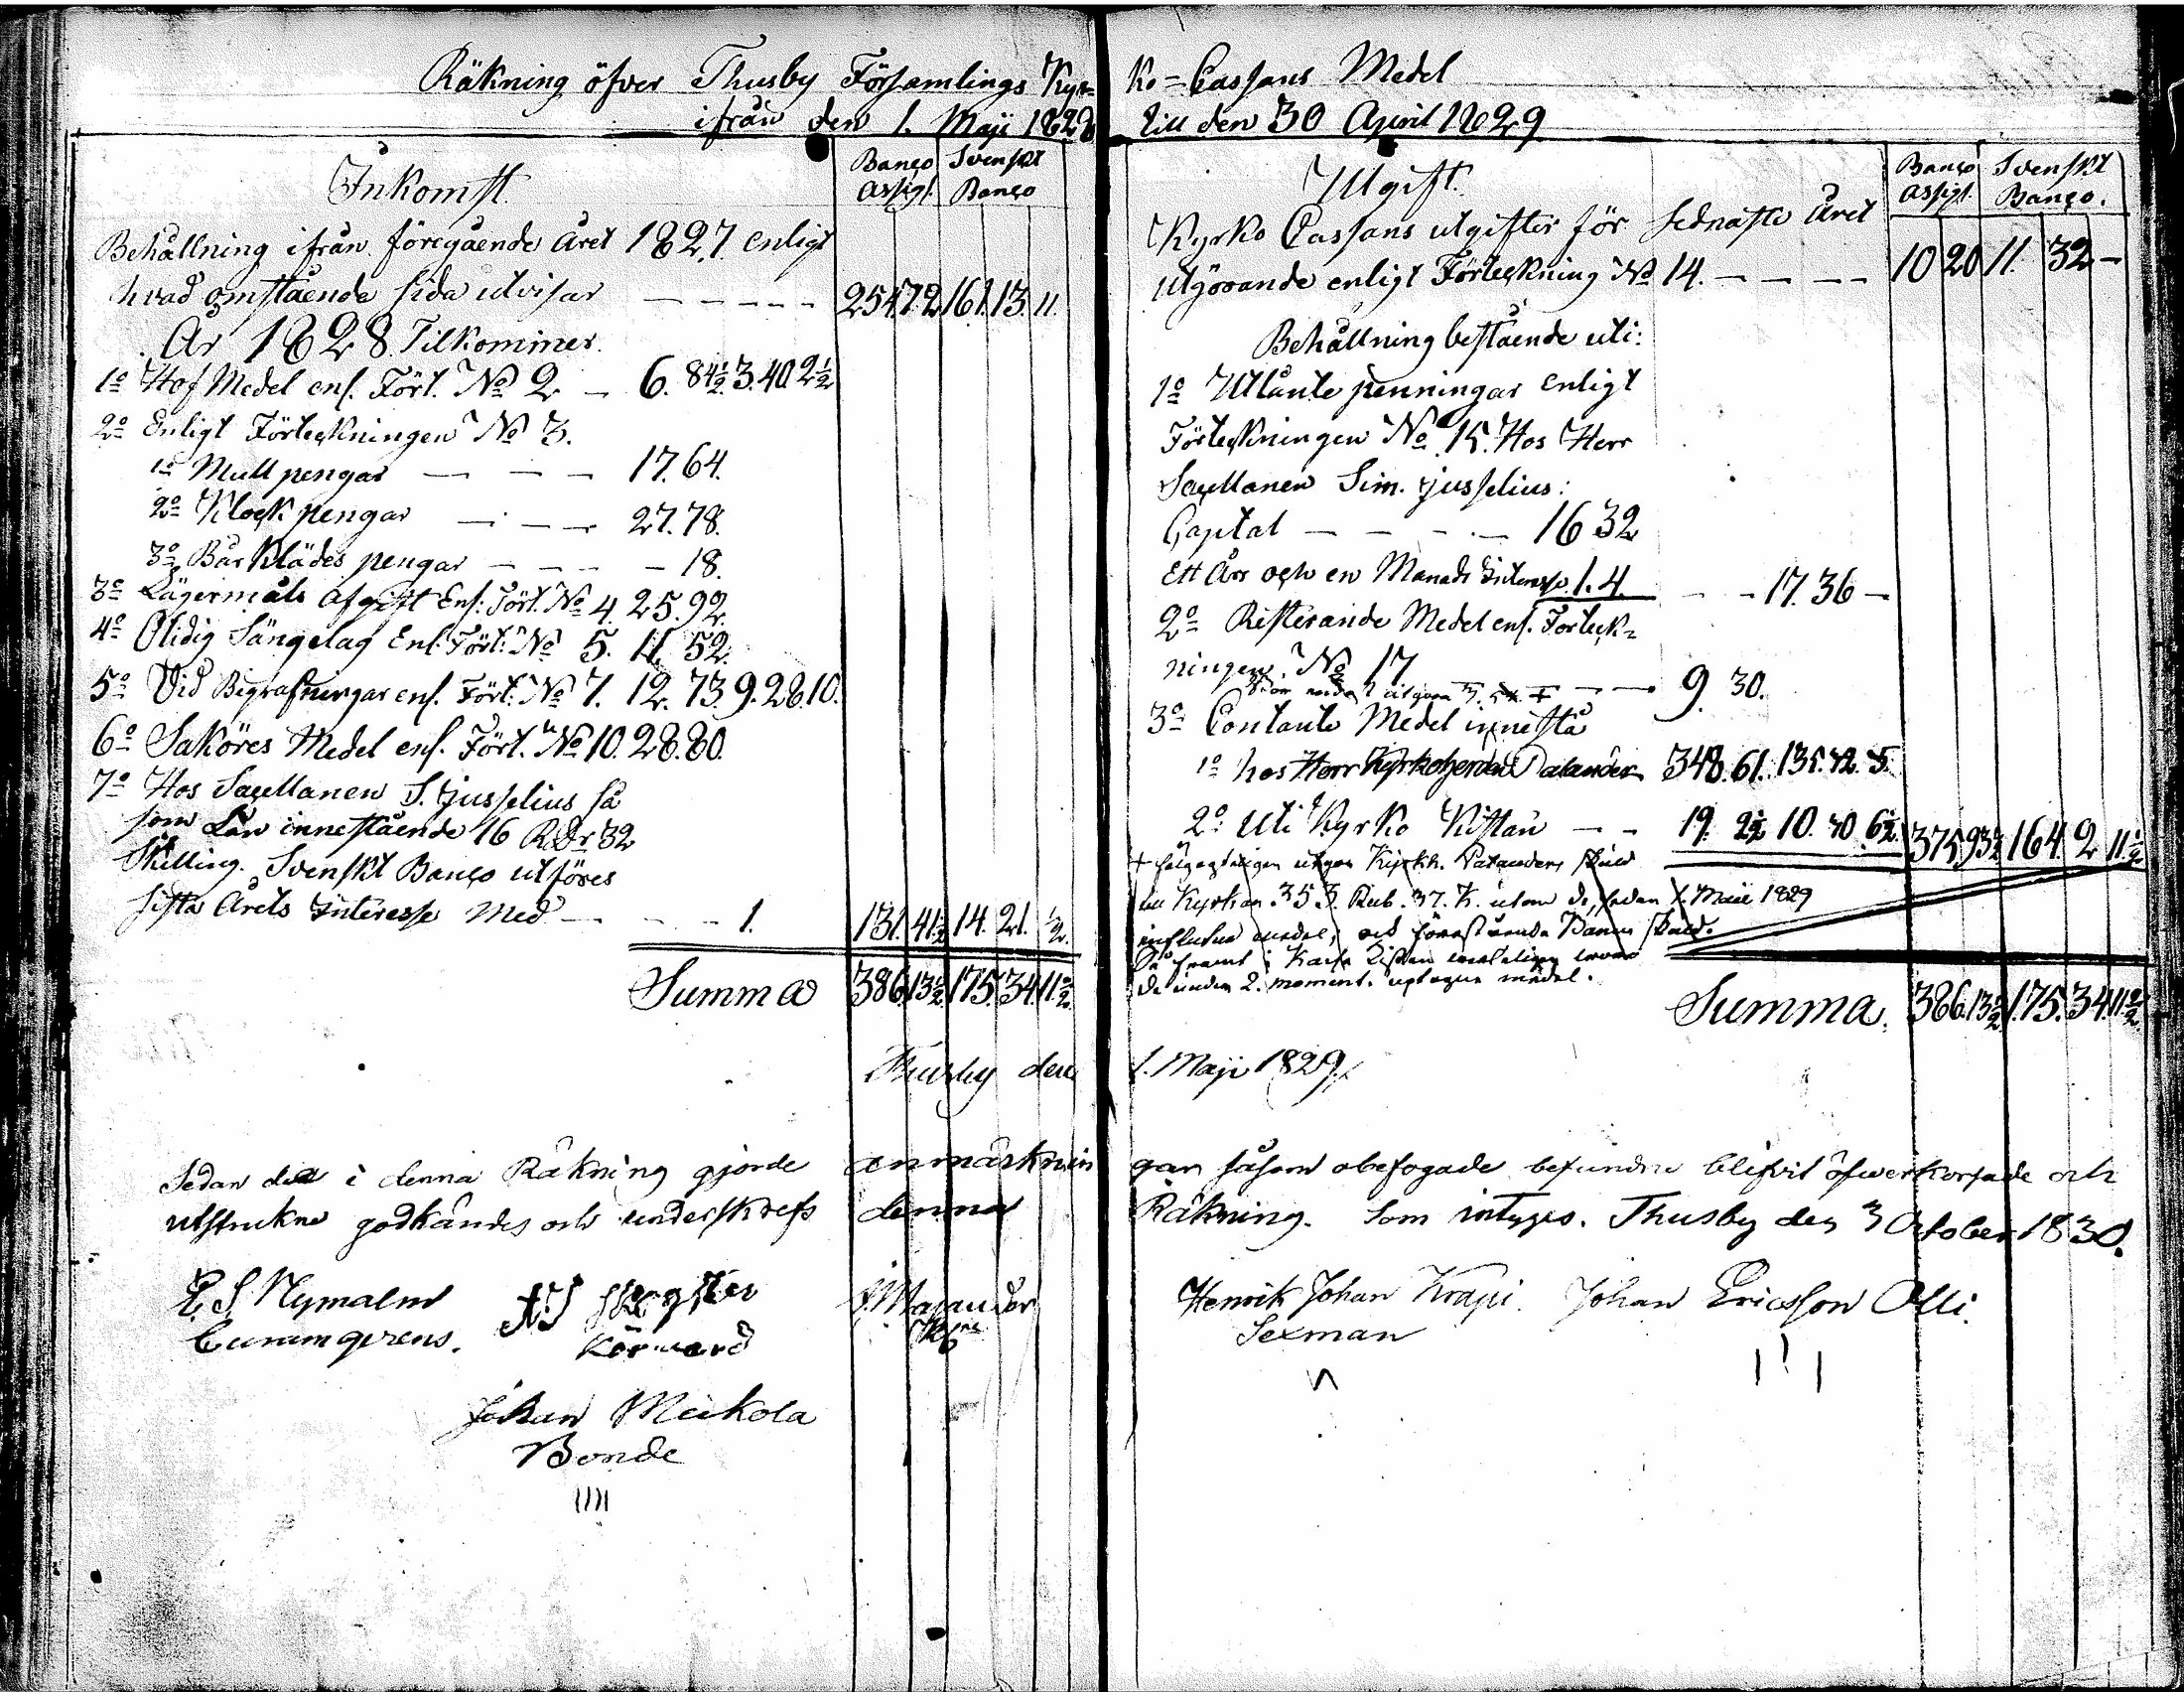 Räkning öfver Thusby Församlings Kyr=
ifrån den 1. Maji 1828
Inkomst.
Banco Assigt. Svenskt Banco
Behållning ifrån föregående Året 1827. enligt
hvad omstående sida utvisar — — — — — 254.72. 161. 13. 11.
År 1828 Tilkommer.
1º Hof Medel enl. Fört. Nº 2. — 6. 84½. 3. 40. 2½
2º Enligt Förteckningen Nº 3.
1º Mullpengar — — — 17. 64.
2º Klock pengar — — — 27. 78.
3º Bårklädes pengar — — — — 18.
3º Lägermåls afgift Enl. Fört. Nº 4. 25. 92.
4º Olidig Sängelag Enl. Fört. Nº 5. 11. 52.
5º Vid Begrafningar enl. Fört. Nº 7. 12. 73. 9. 28. 10.
6º Saköres Medel enl. Fört. Nº 10. 28. 80.
7º Hos Capellanen S. Jusselius så
som Lån innestående 16 R.Dr 32
Skilling. Svenskt Banco utföres
sista Årets Interesse Med — — — 1. 131. 41½ 14. 21. ½.
Summa 386. 13½. 175. 34. 11½.
Thusby den
Sedan de i denna Räkning gjorde anmärknin
utstrukne godkändes och underskrefs denna
E. S. Nymalm
Curam gerens.
Johan Meikola
Bonde
ko=Cassans Medel
till den 30 April 1829
Utgift.
Banco Assigt. Svenskt Banco.
Kyrko Cassans utgifter för sednaste Året
utgörande enligt Förteckning Nº 14. — — — — 10 20 11. 32 —
Behållning bestående uti:
1º Utlånte penningar enligt
Förteckningen Nº 15. Hos Herr
Capellanen Sim. Jusselius:
Capital — — — — 16 32
Ett Års och en Månads Interesse. 1. 4. — — 17. 36 —
2º Resterande Medel enl. Forteck=
ningen. Nº 17 — — 9. 30.
3º Contante Medel innestå
1º hos Herr Kyrkoherden Palander 348. 61. 135. 42. 5.
2º Uti Kyrko Kistan — — 19. 2½ 10. 40. 6½. 375 93½ 164. 2 11½
utgör Kyrkh. Palanders skuld
till Kyrkan 353. Rub. 37. K. utom de, sedan 1. Maii 1829
influtne medel,
de under 2. moment. uptagne medel.
Summa. 386. 13½ 175. 34. 11½
1. Maji 1829.
gar såsom obefogade befundne blifvit öfwerkorsade och
Räkning. Som intygas. Thusby den 3 October 1830.
Henrik Johan Krapi. Johan Ericsson Olli.
Sexman